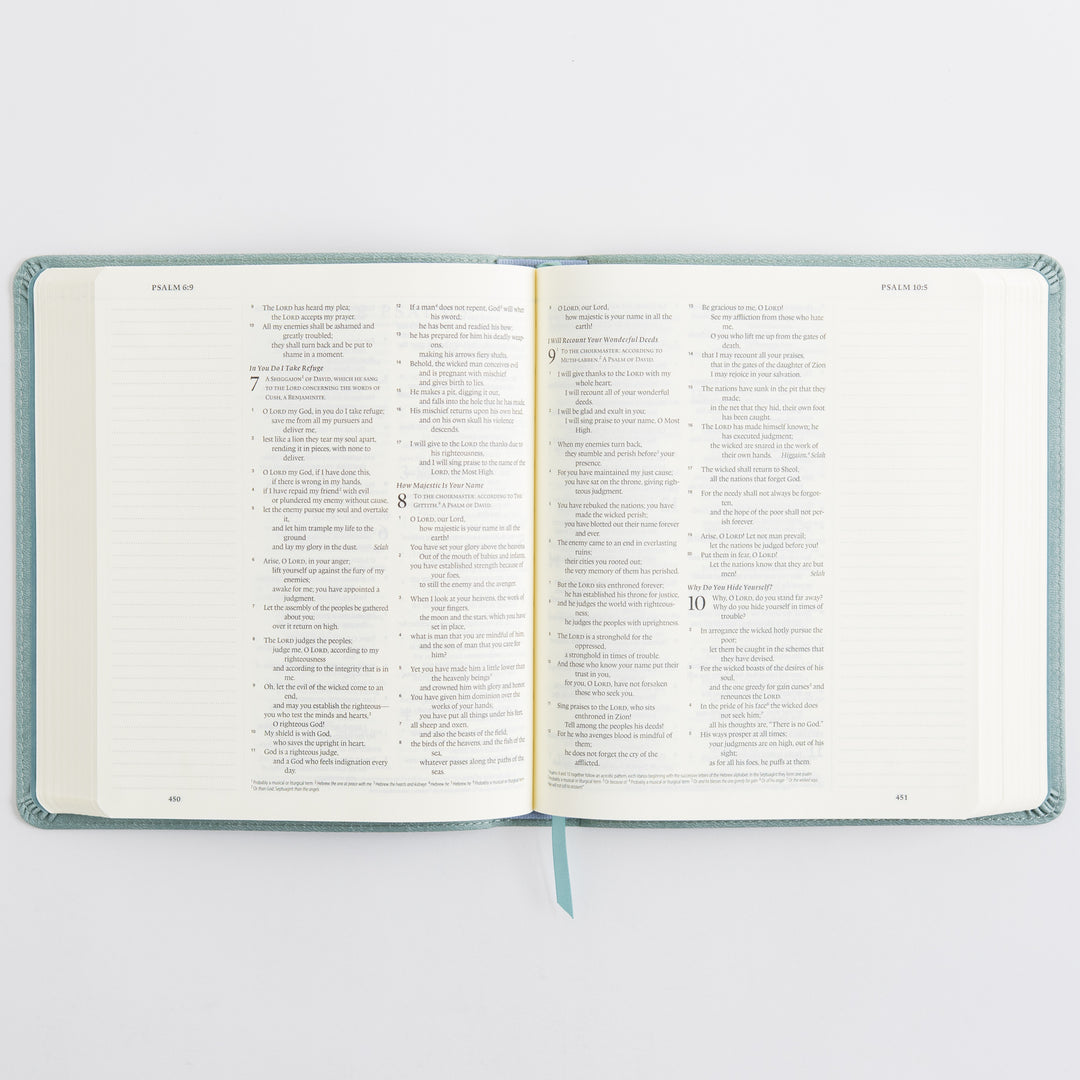 PSALM 6:9
9 The LORD has heard my plea;
the LORD accepts my prayer.
10 All my enemies shall be ashamed and
greatly troubled;
they shall turn back and be put to
shame in a moment.
In You Do I Take Refuge
7 A SHIGGAION¹ OF DAVID, WHICH HE SANG
TO THE LORD CONCERNING THE WORDS OF
CUSH, A BENJAMINITE.
1 O LORD my God, in you do I take refuge;
save me from all my pursuers and
deliver me,
2 lest like a lion they tear my soul apart,
rending it in pieces, with none to
deliver.
3 O LORD my God, if I have done this,
if there is wrong in my hands,
4 if I have repaid my friend² with evil
or plundered my enemy without cause,
5 let the enemy pursue my soul and overtake
it,
and let him trample my life to the
ground
and lay my glory in the dust. Selah
6 Arise, O LORD, in your anger;
lift yourself up against the fury of my
enemies;
awake for me; you have appointed a
judgment.
7 Let the assembly of the peoples be gathered
about you;
over it return on high.
8 The LORD judges the peoples;
judge me, O LORD, according to my
righteousness
and according to the integrity that is in
me.
9 Oh, let the evil of the wicked come to an
end,
and may you establish the righteous—
you who test the minds and hearts,³
O righteous God!
10 My shield is with God,
who saves the upright in heart.
11 God is a righteous judge,
and a God who feels indignation every
day.
12 If a man⁴ does not repent, God⁵ will whet
his sword;
he has bent and readied his bow;
13 he has prepared for him his deadly weap-
ons,
making his arrows fiery shafts.
14 Behold, the wicked man conceives evil
and is pregnant with mischief
and gives birth to lies.
15 He makes a pit, digging it out,
and falls into the hole that he has made.
16 His mischief returns upon his own head,
and on his own skull his violence
descends.
17 I will give to the LORD the thanks due to
his righteousness,
and I will sing praise to the name of the
LORD, the Most High.
How Majestic Is Your Name
8 TO THE CHOIRMASTER: ACCORDING TO THE
GITTITH.⁶ A PSALM OF DAVID.
1 O LORD, our Lord,
how majestic is your name in all the
earth!
You have set your glory above the heavens.
2 Out of the mouth of babies and infants,
you have established strength because of
your foes,
to still the enemy and the avenger.
3 When I look at your heavens, the work of
your fingers,
the moon and the stars, which you have
set in place,
4 what is man that you are mindful of him,
and the son of man that you care for
him?
5 Yet you have made him a little lower than
the heavenly beings⁷
and crowned him with glory and honor.
6 You have given him dominion over the
works of your hands;
you have put all things under his feet,
7 all sheep and oxen,
and also the beasts of the field,
8 the birds of the heavens, and the fish of the
sea,
whatever passes along the paths of the
seas.
¹ Probably a musical or liturgical term ² Hebrew the one at peace with me ³ Hebrew the hearts and kidneys ⁴ Hebrew he ⁵ Hebrew he ⁶ Probably a musical or liturgical term
⁷ Or than God; Septuagint than the angels
450
PSALM 10:5
9 O LORD, our Lord,
how majestic is your name in all the
earth!
I Will Recount Your Wonderful Deeds
9 TO THE CHOIRMASTER: ACCORDING TO
MUTH-LABBEN.² A PSALM OF DAVID.
1 I will give thanks to the LORD with my
whole heart;
I will recount all of your wonderful
deeds.
2 I will be glad and exult in you;
I will sing praise to your name, O Most
High.
3 When my enemies turn back,
they stumble and perish before³ your
presence.
4 For you have maintained my just cause;
you have sat on the throne, giving righ-
teous judgment.
5 You have rebuked the nations; you have
made the wicked perish;
you have blotted out their name forever
and ever.
6 The enemy came to an end in everlasting
ruins;
their cities you rooted out;
the very memory of them has perished.
7 But the LORD sits enthroned forever;
he has established his throne for justice,
8 and he judges the world with righteous-
ness;
he judges the peoples with uprightness.
9 The LORD is a stronghold for the
oppressed,
a stronghold in times of trouble.
10 And those who know your name put their
trust in you,
for you, O LORD, have not forsaken
those who seek you.
11 Sing praises to the LORD, who sits
enthroned in Zion!
Tell among the peoples his deeds!
12 For he who avenges blood is mindful of
them;
he does not forget the cry of the
afflicted.
13 Be gracious to me, O LORD!
See my affliction from those who hate
me,
O you who lift me up from the gates of
death,
14 that I may recount all your praises,
that in the gates of the daughter of Zion
I may rejoice in your salvation.
15 The nations have sunk in the pit that they
made;
in the net that they hid, their own foot
has been caught.
16 The LORD has made himself known; he
has executed judgment;
the wicked are snared in the work of
their own hands. Higgaion.⁴ Selah
17 The wicked shall return to Sheol,
all the nations that forget God.
18 For the needy shall not always be forgot-
ten,
and the hope of the poor shall not per-
ish forever.
19 Arise, O LORD! Let not man prevail;
let the nations be judged before you!
20 Put them in fear, O LORD!
Let the nations know that they are but
men! Selah
Why Do You Hide Yourself?
10 Why, O LORD, do you stand far away?
Why do you hide yourself in times of
trouble?
2 In arrogance the wicked hotly pursue the
poor;
let them be caught in the schemes that
they have devised.
3 For the wicked boasts of the desires of his
soul,
and the one greedy for gain curses⁵ and
renounces the LORD.
4 In the pride of his face⁶ the wicked does
not seek him;⁷
all his thoughts are, "There is no God."
5 His ways prosper at all times;
your judgments are on high, out of his
sight;
as for all his foes, he puffs at them.
Psalms 9 and 10 together follow an acrostic pattern, each stanza beginning with the successive letters of the Hebrew alphabet. In the Septuagint they form one psalm
Probably a musical or liturgical term ³ Or because of ⁴ Probably a musical or liturgical term ⁵ Or and he blesses the one greedy for gain ⁶ Or of his anger ⁷ Or the wicked says,
will not call to account"
451